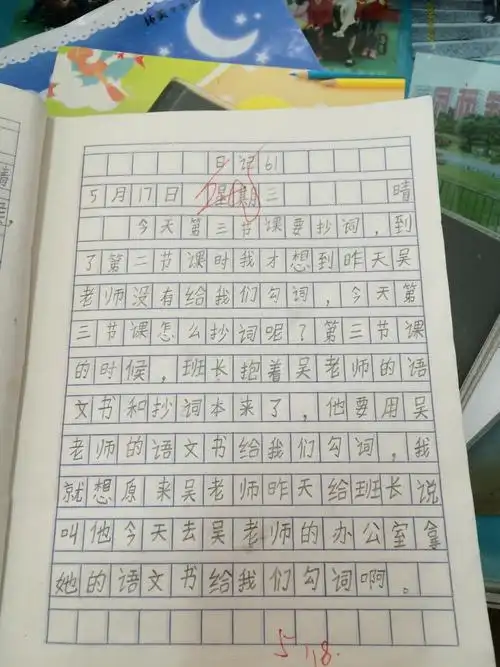 日记61
5月17日 星期三 晴
今天第三节课要抄词,到
了第二节课时我才想到昨天吴
老师没有给我们勾词,今天第
三节课怎么抄词呢?第三节课
的时候,班长抱着吴老师的语
文书和抄词本来了,他要用吴
老师的语文书给我们勾词,我
就想原来吴老师昨天给班长说
叫他今天去吴老师的办公室拿
她的语文书给我们勾词啊。
5/18.